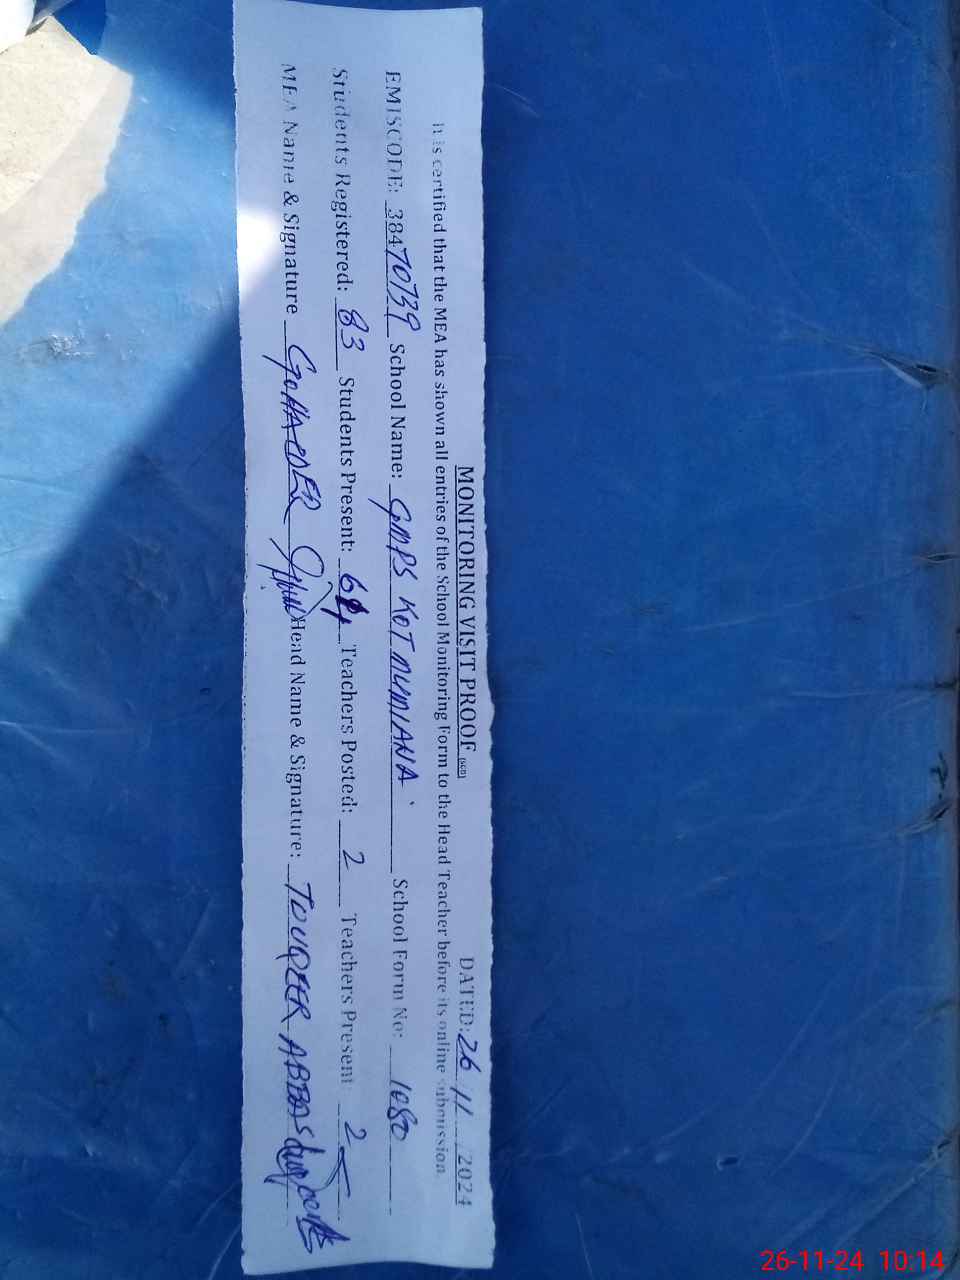 MONITORING VISIT PROOF (SED) DATED: 26/11/2024
It is certified that the MEA has shown all entries of the School Monitoring Form to the Head Teacher before its online submission.
EMISCODE: 38470739 School Name: GMPS KOT MUMIANA School Form No: 1080
Students Registered: 83 Students Present: Teachers Posted: 2 Teachers Present: 2
MEA Name & Signature Head Name & Signature: TOUQEER ABBAS
26-11-24 10:14